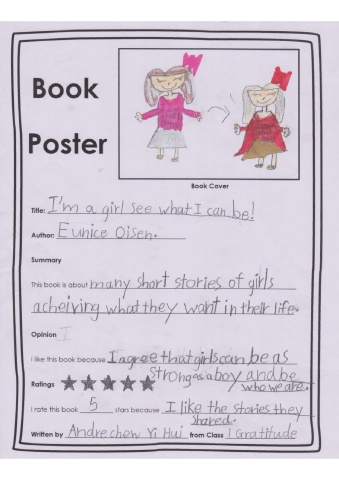 Book
Poster
Book Cover
Title: I'm a girl see what I can be!
Author: Eunice Olsen.
Summary
This book is about many short stories of girls
acheiving what they want in their life.
Opinion I
I like this book because I agree that girls can be as
strong as a boy and be
who we are.
Ratings
I rate this book 5 stars because I like the stories they
shared.
Written by Andrechew Yi Hui from Class 1 Gratitude